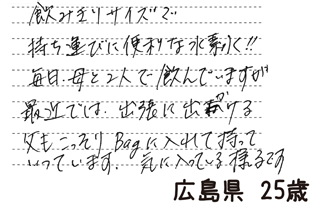 飲みきりサイズで
持ち運びに便利な水素水!!
毎日、母と2人で飲んでいますが
最近では、出張に出掛ける
父もこっそりBagに入れて持って
いっています。気に入っている様です
広島県 25歳